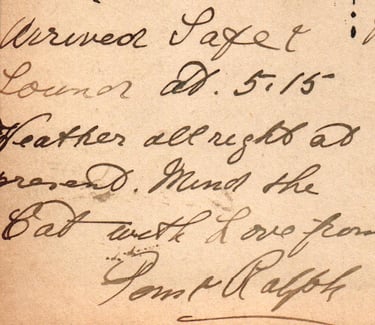 Arrived Safe &
Sound at 5.15
Weather allright at
present. Mind the
Cat with Love from
& Ralph